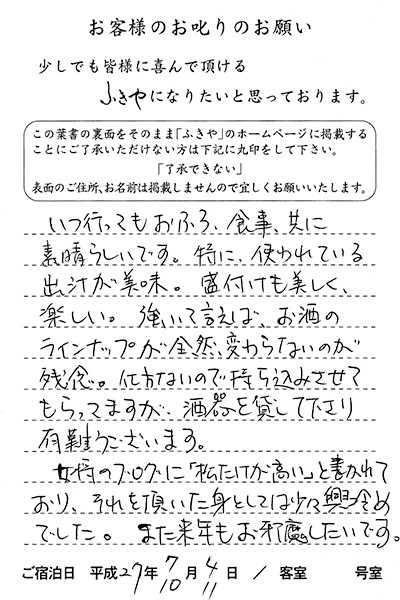 お客様のお叱りのお願い
少しでも皆様に喜んで頂ける
ふきやになりたいと思っております。
この葉書の裏面をそのまま「ふきや」のホームページに掲載する
ことにご了承いただけない方は下記に丸印をして下さい。
「了承できない」
表面のご住所、お名前は掲載しませんので宜しくお願いいたします。
いつ行ってもおふろ、食事、共に
素晴らしいです。特に、使われている
出汁が美味。盛付けも美しく、
楽しい。強いて言えば、お酒の
ラインナップが全然、変わらないのが
残念。仕方ないので持ち込みさせて
もらってますが、酒器を貸して下さり
有難うございます。
女将のブログに「私だけが高い」と書かれて
おり、それを頂いた身としては少々興冷め
でした。また来年もお邪魔したいです。
ご宿泊日 平成27年 7/10 月 4/11 日 / 客室 号室